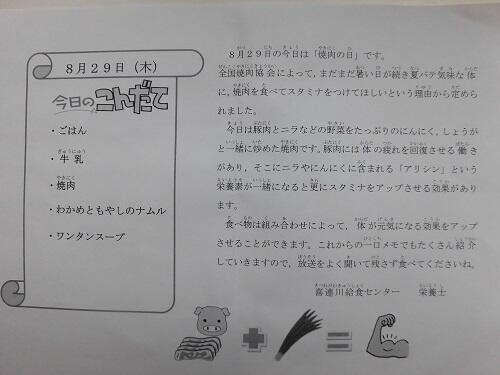 8月29日（木）
今日のこんだて
・ごはん
・牛乳
・焼肉
・わかめともやしのナムル
・ワンタンスープ
8月29日の今日は「焼肉の日」です。
全国焼肉協会によって、まだまだ暑い日が続き夏バテ気味な体
に、焼肉を食べてスタミナをつけてほしいという理由から定め
られました。
今日は豚肉とニラなどの野菜をたっぷりのにんにく、しょうが
と一緒に炒めた焼肉です。豚肉には体の疲れを回復させる働き
があり、そこにニラやにんにくに含まれる「アリシン」という
栄養素が一緒になると更にスタミナをアップさせる効果がありま
す。
食べ物は組み合わせによって、体が元気になる効果をアップ
させることができます。これからの一口メモでもたくさん紹介
していきますので、放送をよく聞いて残さず食べてくださいね。
喜連川給食センター　栄養士